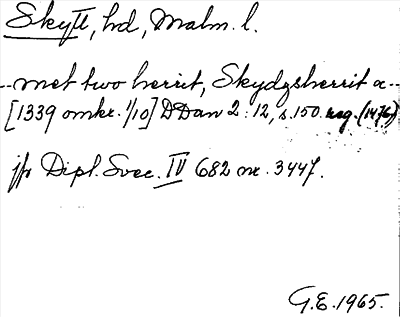 Skytt, hd, Malm. l.
--met two herrit, Skydzsherrit a--
[1339 omkr. 1/10] DDan 2:12, s. 150 reg. (1476)
jfr Dipl. Svec. IV 682 nr. 3447.
G.E. 1965.